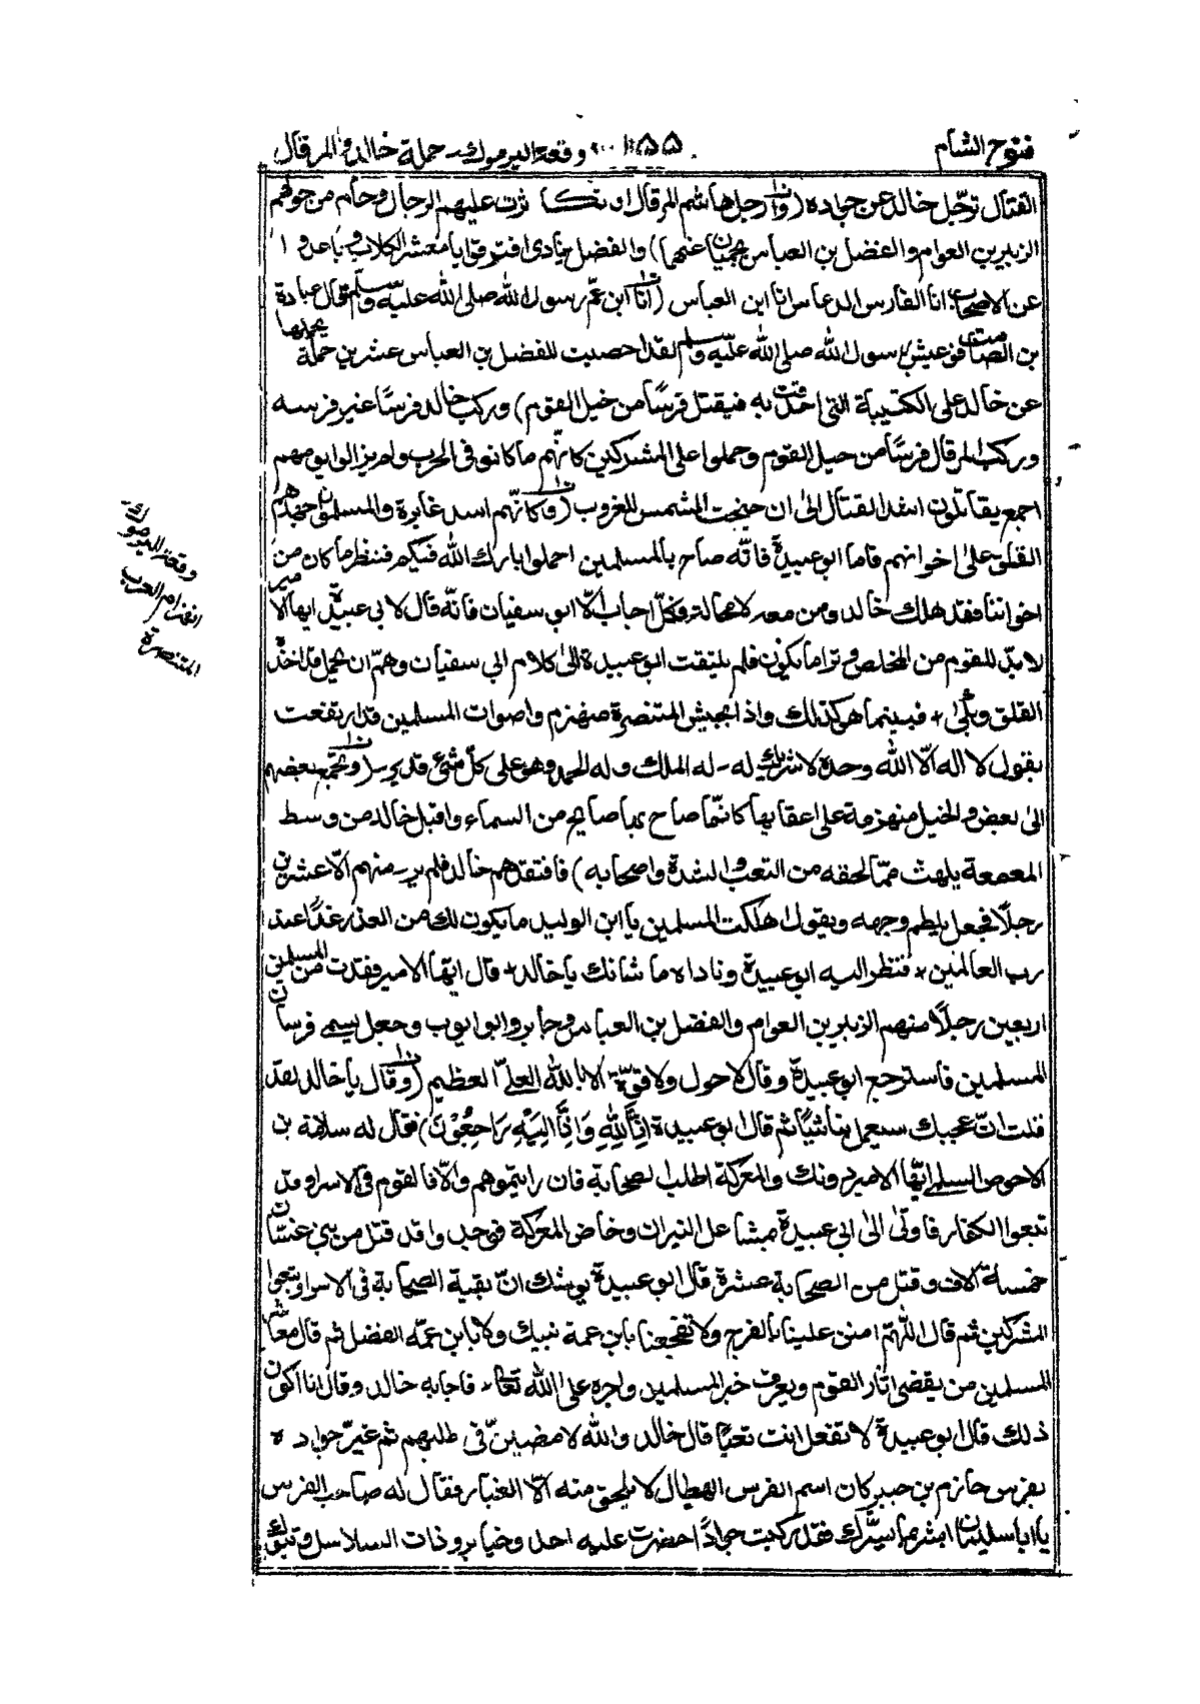 فتوح الشام ١٥٥ وقعة اليرموك - حملة خالد والمرقال
القتال ترجّل خالد عن جواده (ن) وترجل هاشم المرقال اذ تكاثرت عليهم الرجال وحام من حولهم
الزبير بن العوام والفضل بن العباس يحميان عنهما) والفضل ينادى افترقوا يا معشر الكلاب وباعدوا
عن الاصحاب انا الفارس الدعاس انا ابن العباس (ن) انا ابن عمّ رسول الله صلى الله عليه وسلم قال عبادة
بن الصامت فوعيش رسول الله صلى الله عليه وسلم لقد احصيت للفضل بن العباس عشرين حملة يحملها
عن خالد على الكتيبة التى احدقت به فيقتل فرسًا من خيل القوم) وركب خالد فرسًا غير فرسه
وركب المرقال فرسًا من خيل القوم وحملوا على المشركين كانّهم ما كانوا فى الحرب ولم يزالوا يومهم
اجمع يقاتلون اشد القتال الى ان جنحت الشمس للغروب (ن) وكانّهم اسد غابرة والمسلمون اجهدهم
القلق على اخوانهم فاما ابو عبيدة فانّه صاح بالمسلمين احملوا بارك الله فيكم فننظر ما كان من
اخواننا فقد هلك خالد ومن معه لا محالة فكلّ اجاب الّا ابو سفيان فانّه قال لابى عبيدة ايها الامير
لا بدّ للقوم من المخلص وترا ما يكون فلم يلتفت ابو عبيدة الى كلام ابى سفيان وهمّ ان يحمل قد اخذه
القلق وبكى + فبينما هو كذلك واذا بجيش المتنصرة منهزم واصوات المسلمين قد ارتفعت
بقول لا اله الّا الله وحده لا شريك له - له الملك وله الحمد وهو على كلّ شئ قدير - (ن) وتجمّع بعضهم
الى بعض والخيل منهزمة على اعقابها كانّما صاح بها صايح من السماء واقبل خالد من وسط
المعمعة يلهث ممّا لحقه من التعب والشدة واصحابه) فافتقدهم خالد فلم ير منهم الّا عشرين
رجلًا فجعل يلطم وجهه ويقول اهلكت المسلمين يا ابن الوليد ما يكون لك من العذر غدًا عند
رب العالمين + فنظر اليه ابو عبيدة وناداه ما شانك يا خالد + قال ايّها الامير فقدت من المسلمين
اربعين رجلًا منهم الزبير بن العوام والفضل بن العباس وجابر وابو ايوب وجعل يسمى فرسان
المسلمين فاسترجع ابو عبيدة وقال لا حول ولا قوّة الا بالله العلىّ العظيم (ن) وقال يا خالد لقد
قلت انّ عجبك سيعمل بنا شيًا ثم قال ابو عبيدة اِنَّا لِلّٰهِ وَاِنَّا اِلَيْهِ رَاجِعُوْنَ) فقال له سلامة بن
الاحوص السلمى ايّها الامير دونك والمعركة اطلب الصحابة فان رايتموهم والّا فالقوم فى الاسر او قد
تبعوا الكفار فاوتى الى ابى عبيدة بمشاعل النيران وخاض المعركة فوجدوا قد قتل من بنى غسّان
خمسة آلاف وقتل من الصحابة عشرة قال ابو عبيدة يوشك انّ بقية الصحابة فى الاسر او تبعوا
المشركين ثم قال اللّٰهمّ امنن علينا بالفرج ولا تفجعنا بابن عمة نبيك ولا بابن عمّه الفضل ثم قال معاشر
المسلمين من يقضى اثار القوم ويعرف خبر المسلمين واجره على الله تعالى - فاجابه خالد وقال انا اكون
ذلك قال ابو عبيدة لا تفعل انت تعبًا قال خالد والله لا مضينّ فى طلبهم ثم غيّر جواده
بفرس حازم بن جبير كان اسم الفرس الهطال لا يلحق منه الّا الغبار فقال له صاحب الفرس
يا ابا سليمان ابشر بما يسرّك فقد ركبت جوادًا احضرت عليه احد وخيابر وذات السلاسل وتبوك
وقعة اليرموك
انهزام العرب
المتنصرة